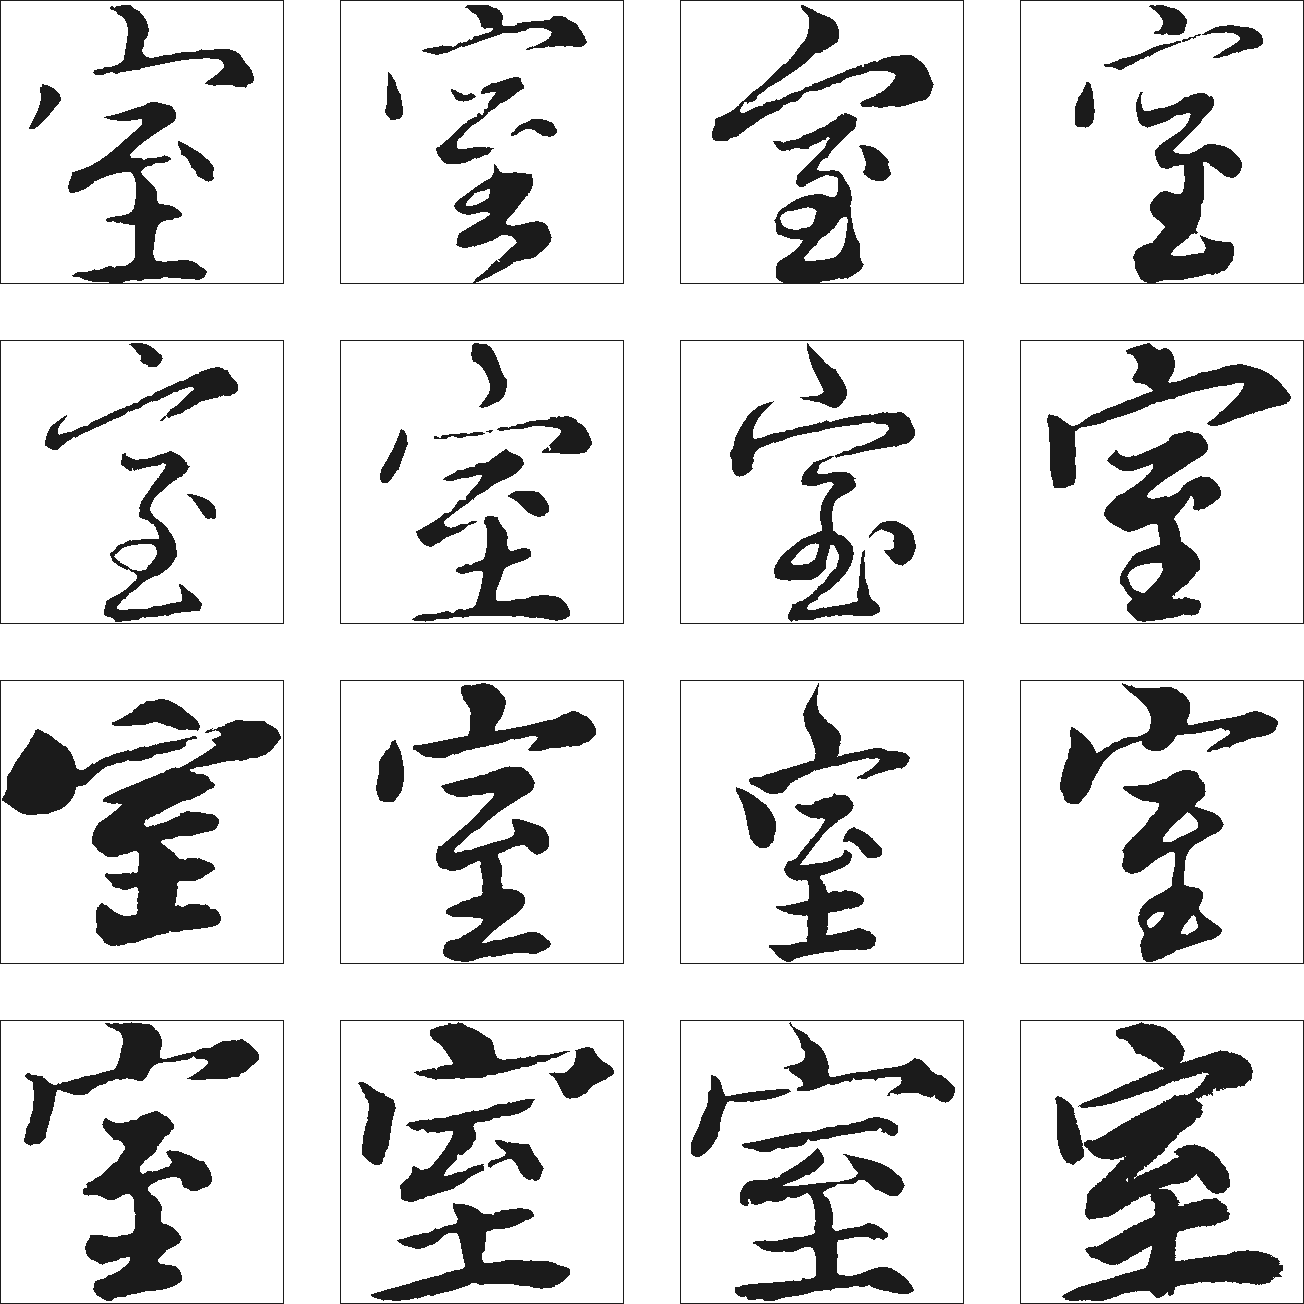 室室室室
室室室室
室室室室
室室室室